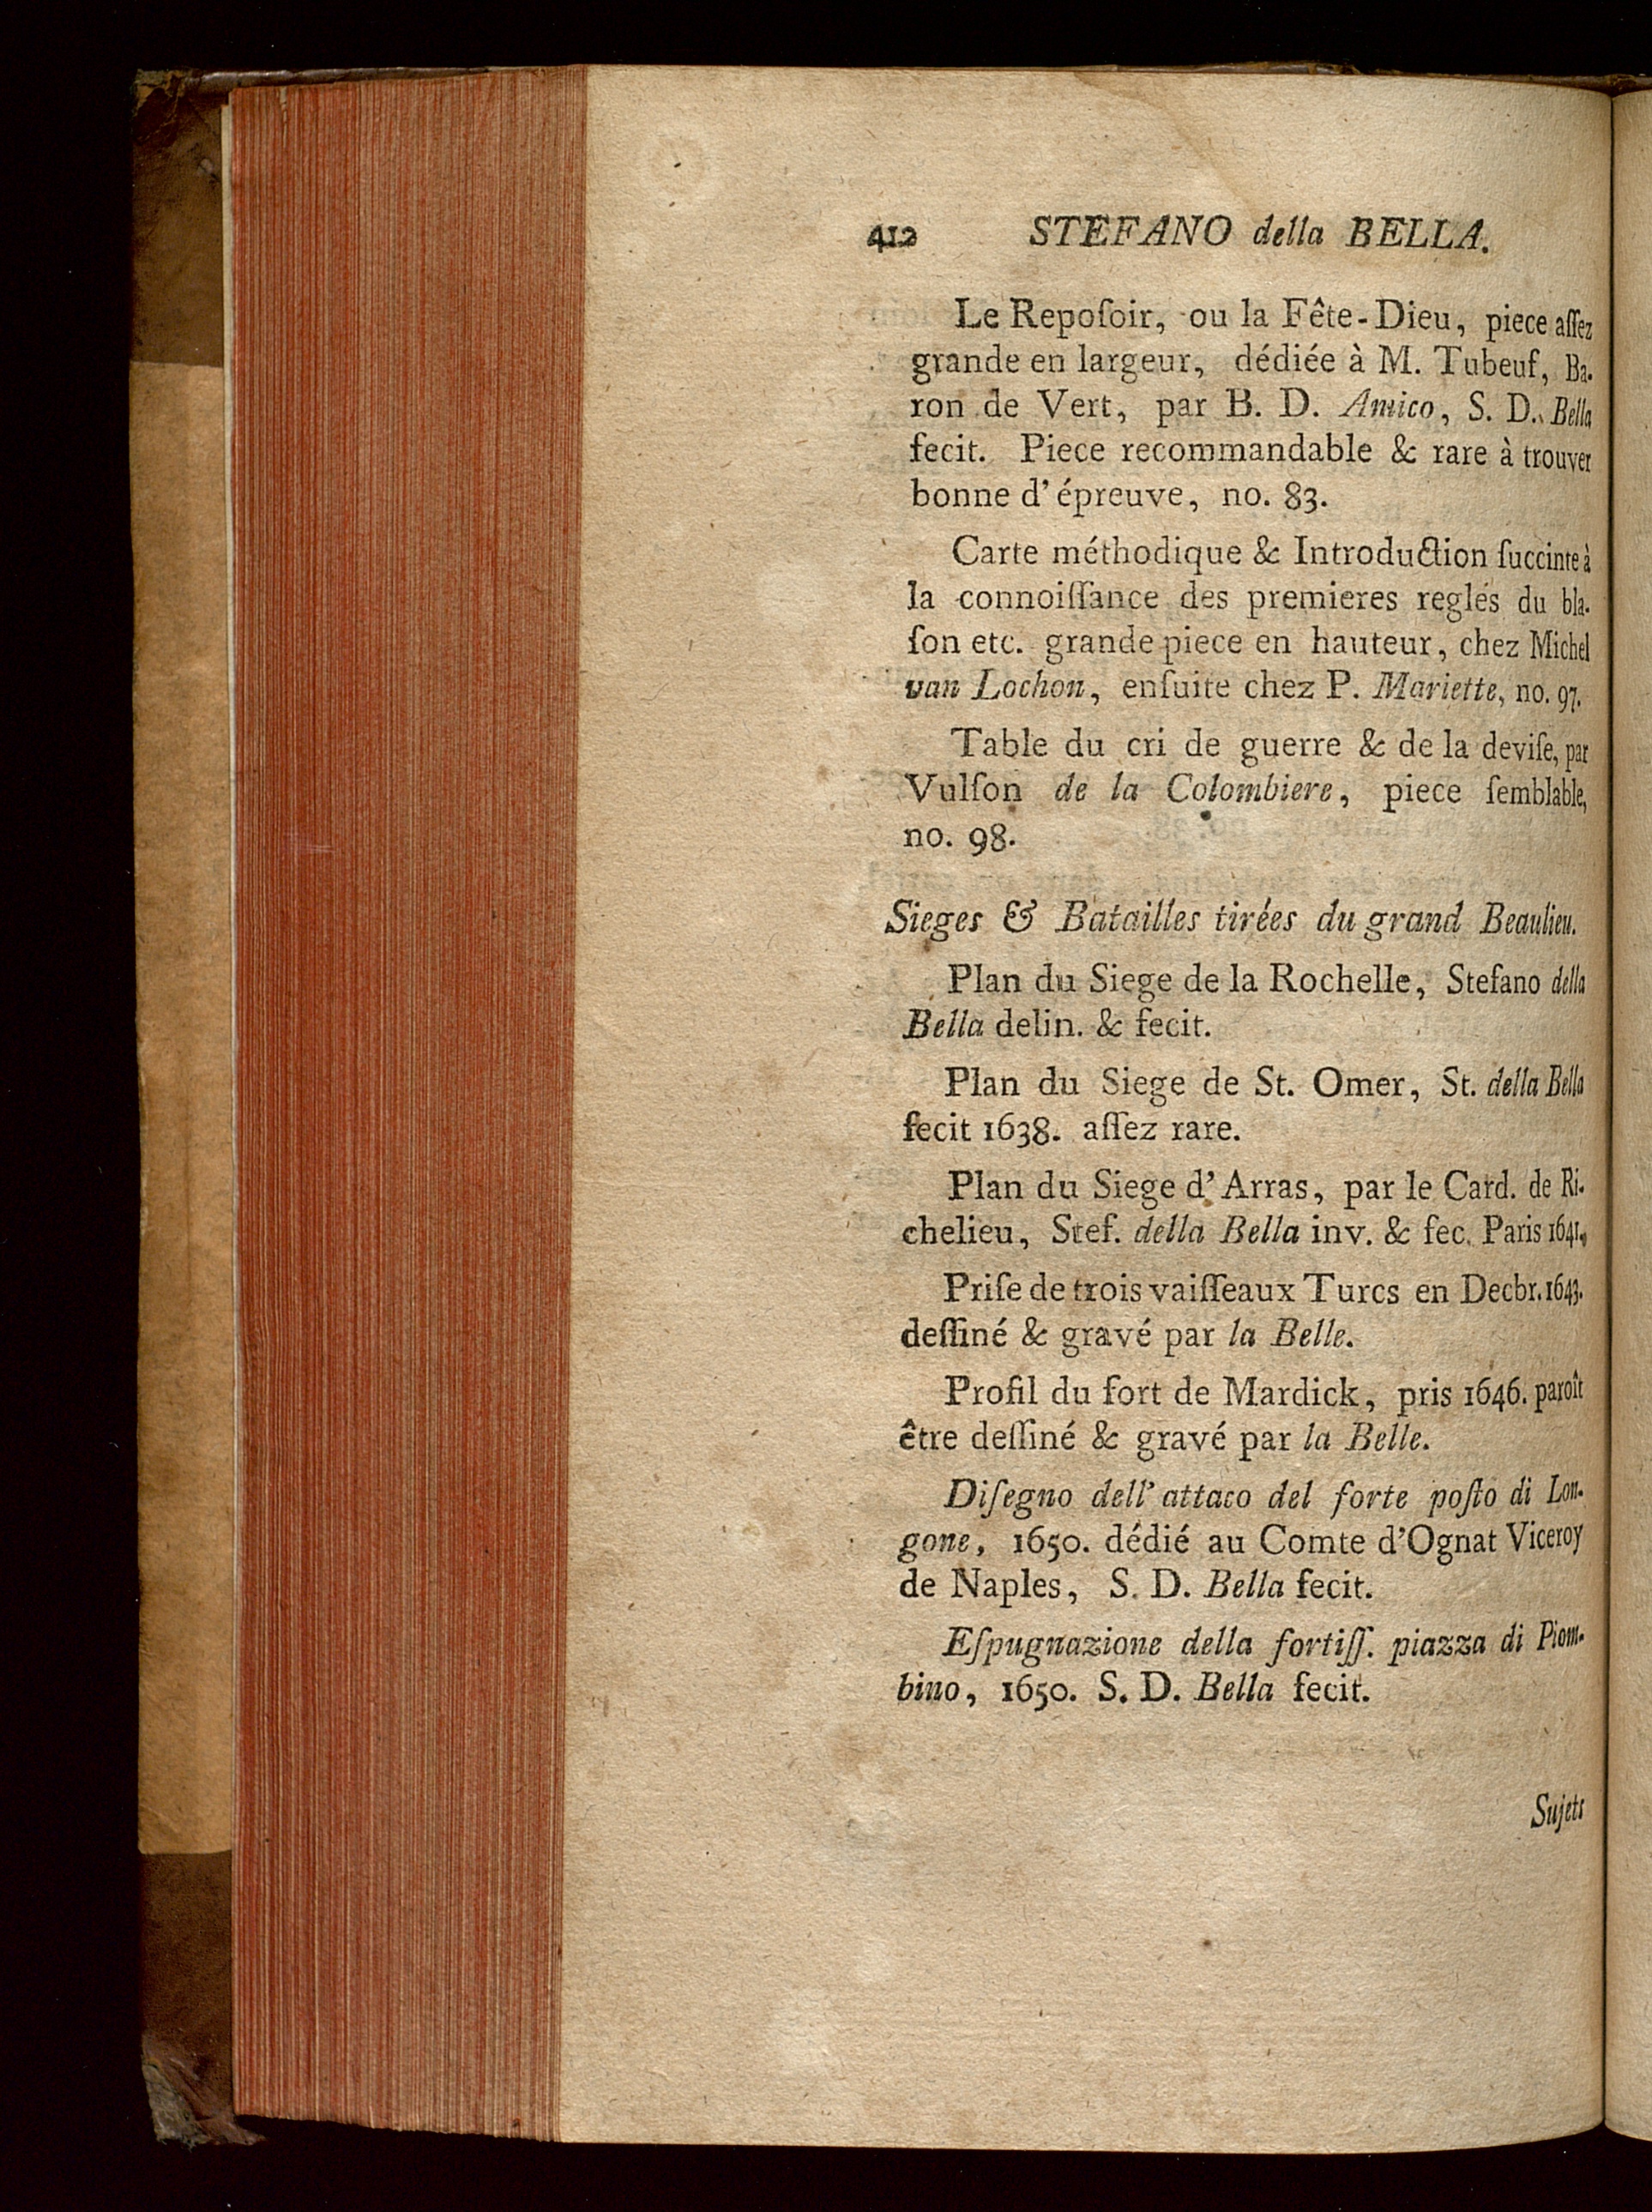 412 STEFANO della BELLA.
Le Repoſoir, ou la Fête-Dieu, piece aſſez
grande en largeur, dédiée à M. Tubeuf, Ba-
ron de Vert, par B. D. Amico, S. D. Bella
fecit. Piece recommandable & rare à trouver
bonne d'épreuve, no. 83.
Carte méthodique & Introduction ſuccinte à
la connoiſſance des premieres regles du bla-
ſon etc. grande piece en hauteur, chez Michel
van Lochon, enſuite chez P. Mariette, no. 97.
Table du cri de guerre & de la deviſe, par
Vulſon de la Colombiere, piece ſemblable,
no. 98.
Sieges & Batailles tirées du grand Beaulieu.
Plan du Siege de la Rochelle, Stefano della
Bella delin. & fecit.
Plan du Siege de St. Omer, St. della Bella
fecit 1638. aſſez rare.
Plan du Siege d'Arras, par le Card. de Ri-
chelieu, Stef. della Bella inv. & fec. Paris 1641.
Priſe de trois vaiſſeaux Turcs en Decbr. 1643.
deſſiné & gravé par la Belle.
Profil du fort de Mardick, pris 1646. paroît
être deſſiné & gravé par la Belle.
Diſegno dell' attaco del forte poſto di Lon-
gone, 1650. dédié au Comte d'Ognat Viceroy
de Naples, S. D. Bella fecit.
Eſpugnazione della fortiſſ. piazza di Piom-
bino, 1650. S. D. Bella fecit.
Sujets